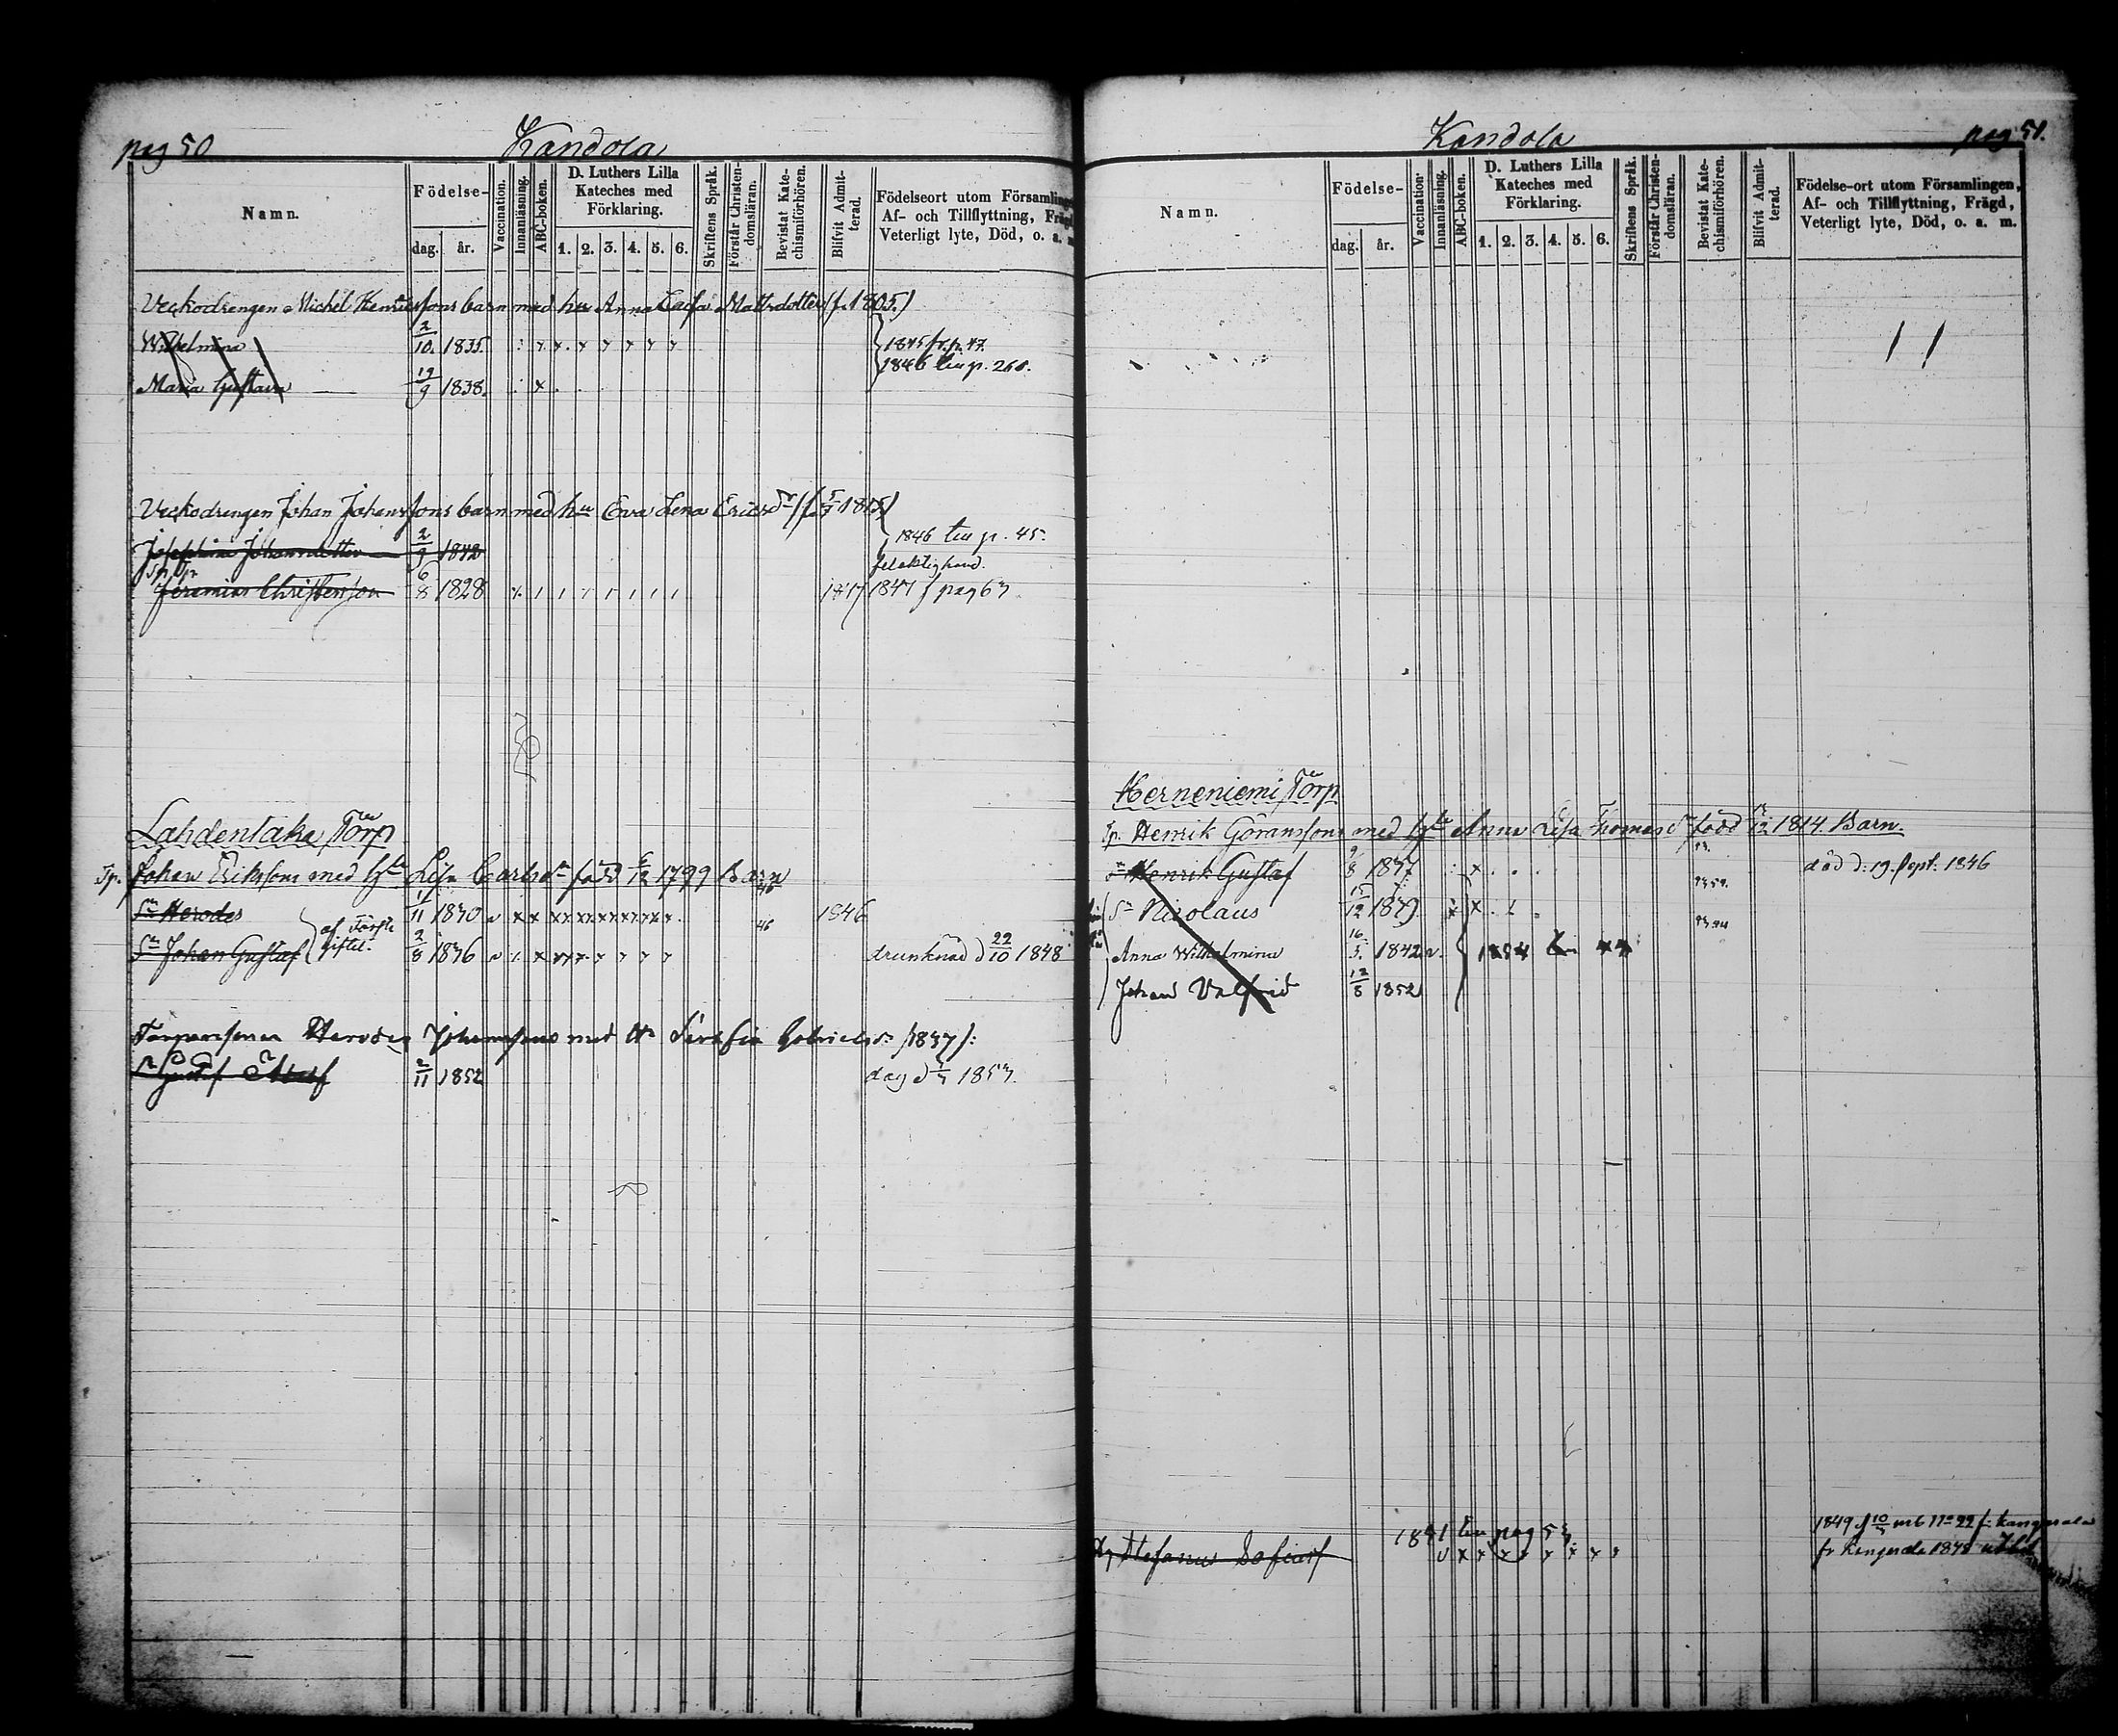 pag 50 Kandola
Namn.
Födelse-
dag. år.
Vaccination.
Innanläsning.
ABC-boken.
D. Luthers Lilla
Kateches med
Förklaring.
1. 2. 3. 4. 5. 6.
Skriftens Språk.
Förstår Christen-
domsläran.
Bevistat Kate-
chismiförhören.
Blifvit Admit-
terad.
Födelseort utom Församling
Af- och Tillflyttning, Frägd
Veterligt lyte, Död, o. a. m
Veckodrengen Michel Henricssons barn med hu Anna Caisa Mattsdotter (f. 1805.)
Wilhelmina 2/10. 1835. 1845 fr. p. 47.
1846 till p. 260.
Maria Gustava 19/9 1838.
Veckodrengen Johan Johanssons barn med hu Eva Lena Ericsdr (f. 5/7 1815)
1846 till p. 45.
Josephina Johannsdotter 2/9 1842
felaktig hand.
Jeremias Christensson 6/8 1828 1847 1847 f pag 63
Lahdentaka Torp
Tp. Johan Erikssons med hu Lisa Carlsdr född 6/12 1799 Barn
Sn Herodes 11/11 1830 46 1846
af Förste giftet.
Sn Johan Gustaf 2/8 1836 46 drunknad d 22/10 1848
Torparesonen Herodes Johanssons med Hu Serafia Gabrielsdr /1837/:
Sn Gustaf Adolf 2/11 1852 dog d 7/3 1853.
Kandola pag 51.
Namn.
Födelse-
dag. år.
Vaccination.
Innanläsning.
ABC-boken.
D. Luthers Lilla
Kateches med
Förklaring.
1. 2. 3. 4. 5. 6.
Skriftens Språk.
Förstår Christen-
domsläran.
Bevistat Kate-
chismiförhören.
Blifvit Admit-
terad.
Födelse-ort utom Församlingen,
Af- och Tillflyttning, Frägd,
Veterligt lyte, Död, o. a. m.
Herneniemi Torp
Tp. Henrik Göranssons med hu Anna Lisa Thomasdr född 1814. Barn.
Henrik Gustaf 9/8 1837 död d: 19. Sept: 1846
Sn Nicolaus 15/12 1839.
Anna Wilhelmina 16/3. 1842
1854
Johan Valfrid 12/8 1852
1851 till pag 53.
Stefanus
1849 f 10/3 m b No 22 fr Kangasala
fr Kangasala 1848